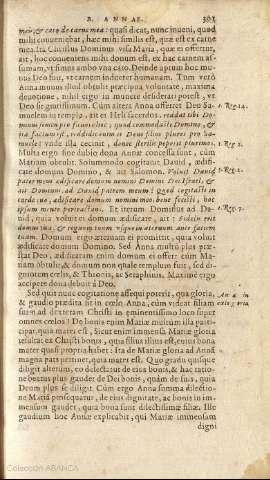 B. ANNAE. 301
meis, & caro de carne mea: quasi dicat, nunc inueni, quod
mihi conueniebat, haec mihi similis est, quae est ex carne
mea. Ita Christus Dominus visa Maria, quae ei offertur,
ait, hoc conueniens mihi donum est, ex hac carnem as-
sumam, vt simus ambo vna caro. Deinde aptum hoc mu-
nus Deo fuit, vt carnem indueret humanam. Tum vero
Anna munus illud obtulit praecipua voluntate, maxima
deuotione, nihil ergo in munere desiderari potest, vt
Deo sit gratissimum. Cum altera Anna offerret Deo Sa-
muelem in templo, ait ei Heli sacerdos. reddat tibi Do-
minus semen pro foenere hoc, quod commodasti Domino, &
ita factum est, reddidit enim ei Deus filios plures pro Sa-
muele; vnde illa cecinit, donec sterilis peperit plurimos.
Multa ergo sine dubio dona Annae concessa sunt, cum
Mariam obtulit. Solummodo cogitauit Dauid, aedifi-
care domum Domino, & ait Salomon. Voluit Dauid
pater meus aedificare domum nomini Domini Dei Israel, &
ait Dominus ad Dauid patrem meum: Quod cogitasti in
corde tuo, aedificare domum nomini meo: bene fecisti, hoc
ipsum mente pertractans. Et iterum Dominus ad Da-
uid, quia voluit ei domum aedificare, ait: Fidelis erit
domus tua, & regnum tuum vsque in aeternum ante faciem
tuam. Domum ergo aeternam ei promittit, quia voluit
aedificare domum Domino. Sed Anna multo plus prae-
stat Deo, aedificatam enim domum ei offert cum Ma-
riam obtulit, & domum non quale templum fuit, sed di-
gniorem coelis, & Thronis, ac Seraphinis. Maximè ergo
accipere dona debuit à Deo.
Sed quis nunc cogitatione assequi poterit, quae gloria,
& gaudio praedita sit in coelo Anna, cum videat filiam
suam ad dexteram Christi in eminentissimo loco super
omnes coelos? De bonis enim Mariae multum illa parti-
cipat, quia mater est, Sicut enim immensa Mariae gloria
resultat ex Christi bonis, quia filius illius est, cuius bona
mater quasi propria habet: Ita de Mariae gloria ad Annā
magna pars pertinet, quia mater est. Quo gradu quisque
diligit alterum, eo delectatur de eius bonis, & hac ratio-
ne beatus plus gaudet de Dei bonis, quàm de suis, quia
Deum plus se diligit. Cum ergo Anna summa dilectio-
ne Mariā prosequatur, de eius dignitate, ac bonis in im-
mensum gaudet, quia bona sunt dilectissimae filiae. Ille
gaudium hoc Annae explicabit, qui Mariae immensam
digni
1 Reg. 14.
1 Reg. 2.
1 Reg. 7.
Colección ABANCA